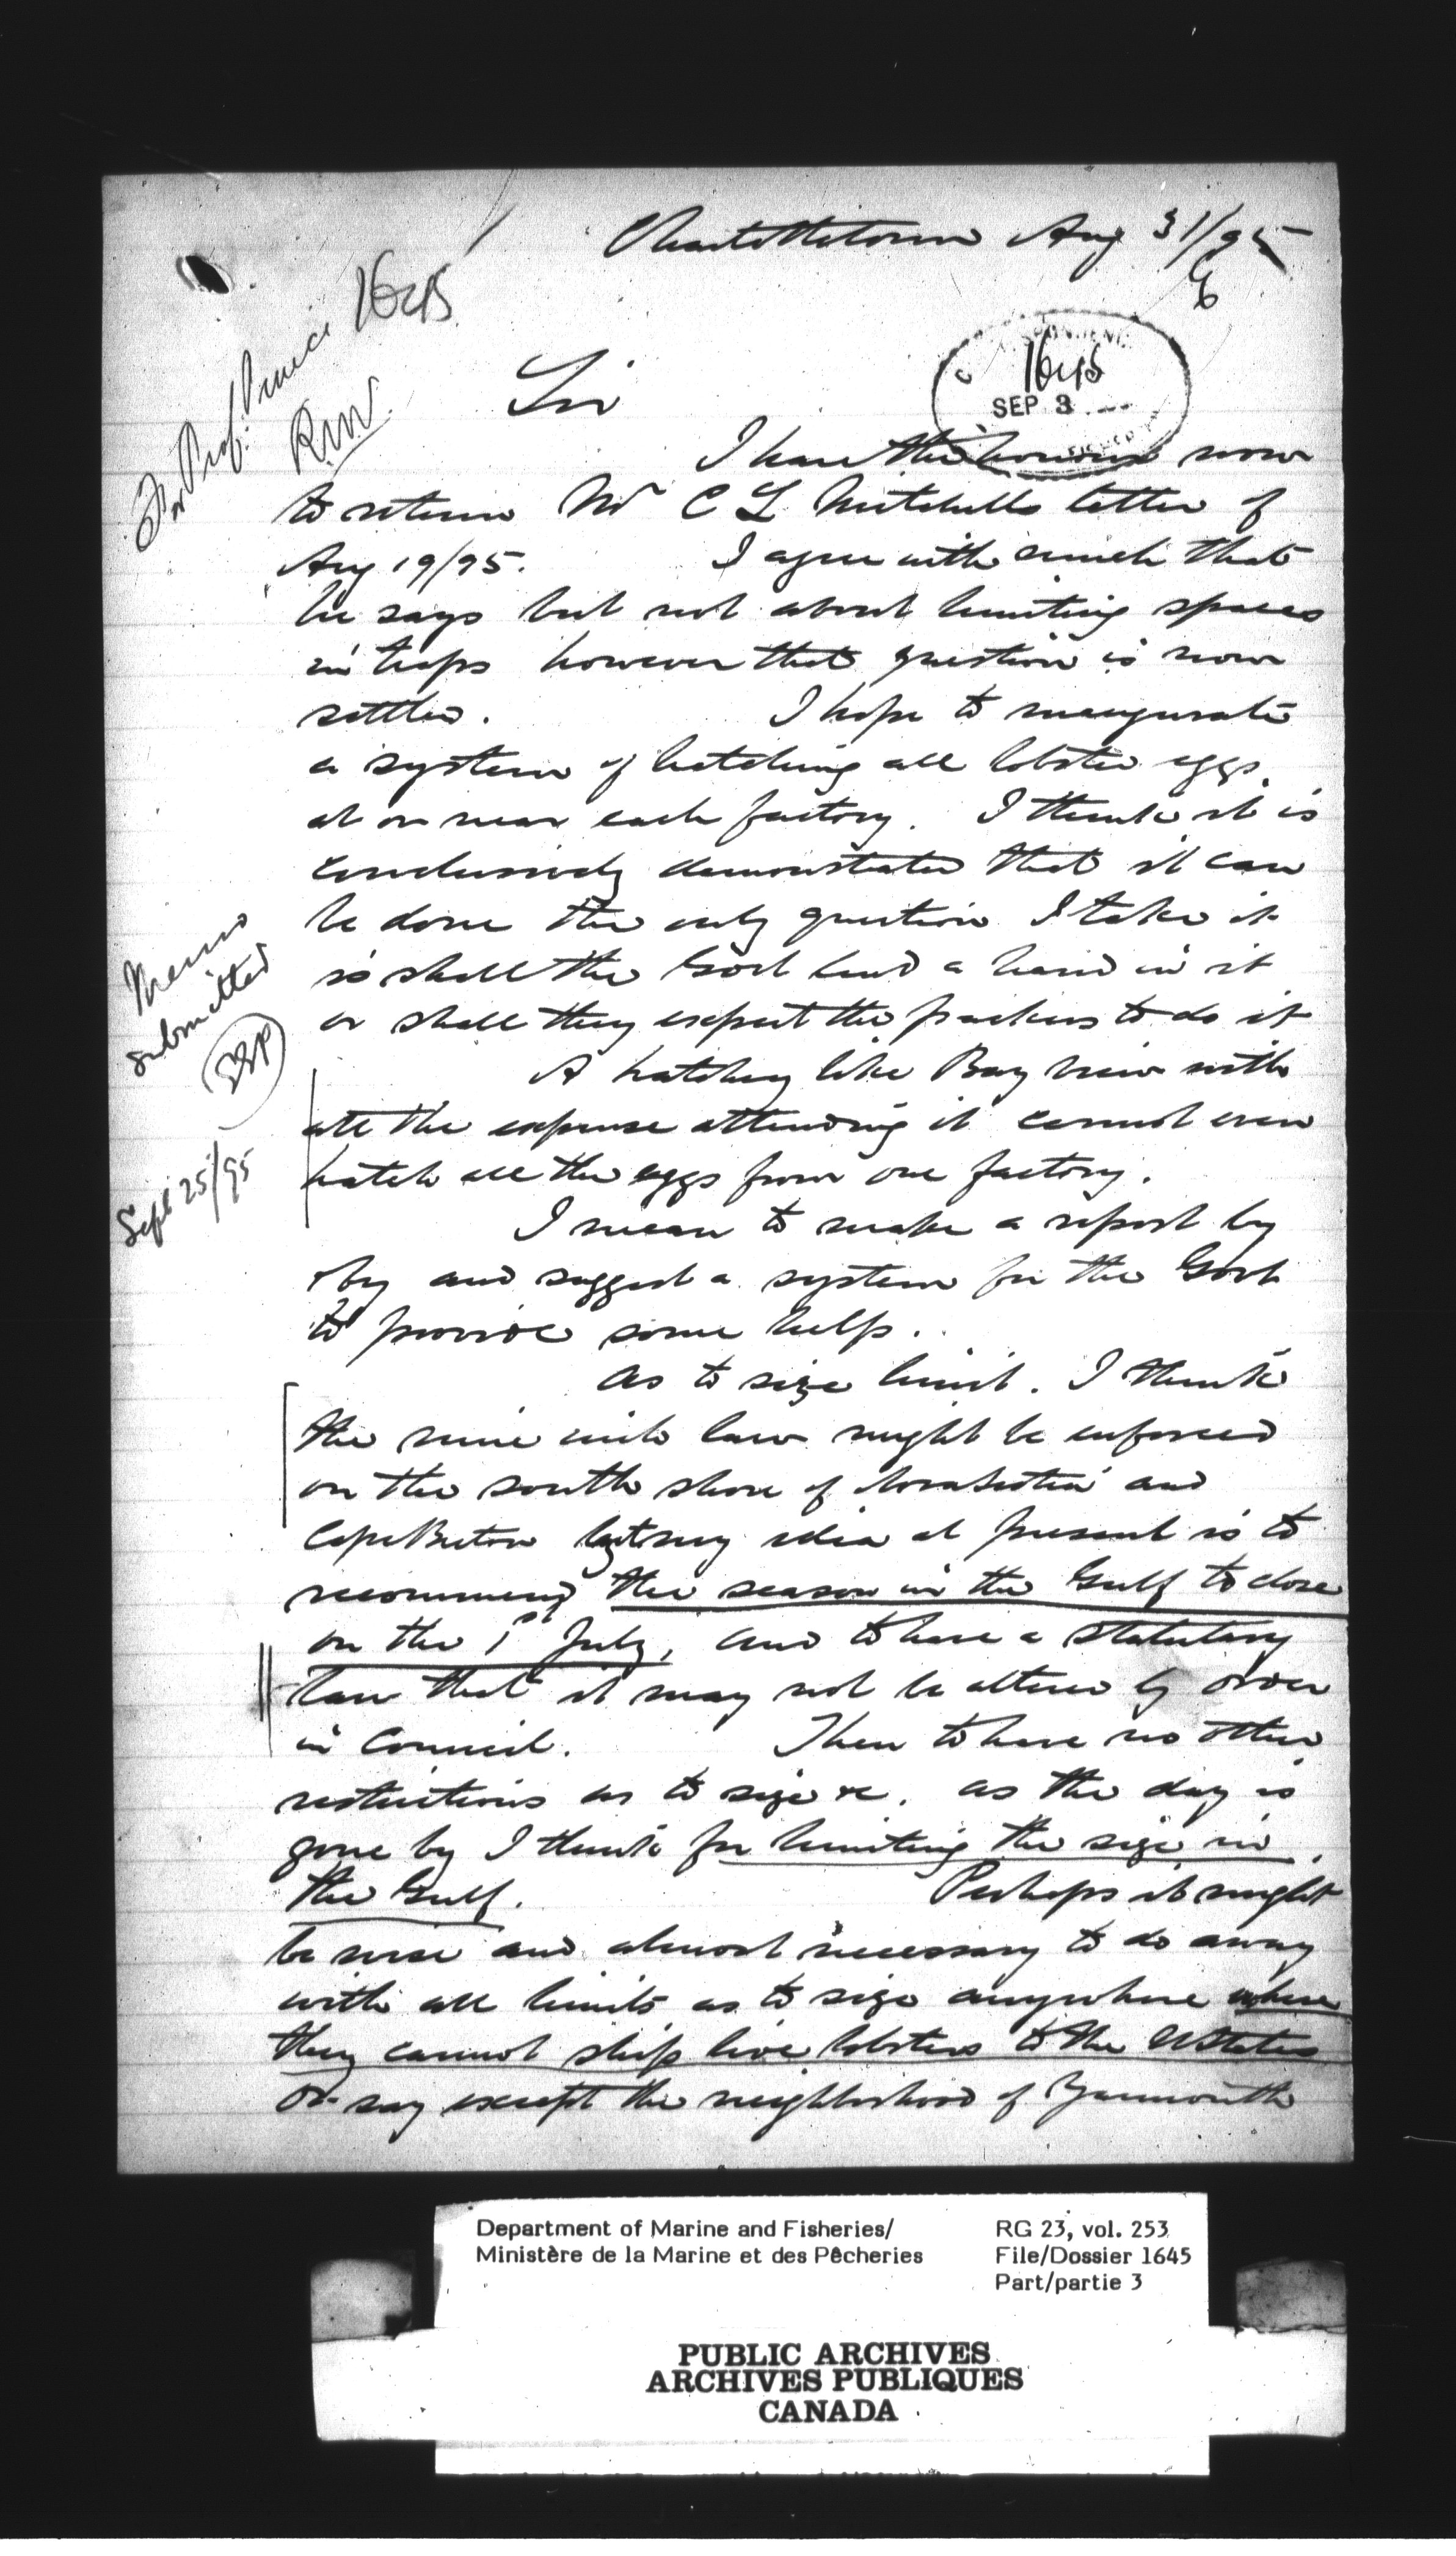 Charlottetown Aug 31/95
1645
For Prof. Prince
RW
1645
SEP 3
Sir
I have the honour now
to return Mr C L Mitchells letter of
Aug 19/95. I agree with much that
he says but not about limiting spaces
in traps however that question is now
settled. I hope to inaugurate
a system of hatching all lobster eggs
at or near each factory. I think it is
conclusively demonstrated that it can
be done the only question I take it
is shall the Govt lend a hand in it
or shall they expect the packers to do it
A hatchery like Bay View with
all the expense attending it cannot even
hatch all the eggs from one factory.
I mean to make a report by
& by and suggest a system for the Govt
to provide some help.
As to size limit. I think
the nine inch law might be enforced
on the south shore of Nova Scotia and
Cape Breton but my idea at present is to
recommend the season in the Gulf to close
on the 1st July, and to have a statutory
law that it may not be altered by order
in Council. Then to have no other
restrictions as to size &c. as the day is
gone by I think for limiting the size in
the Gulf. Perhaps it might
be wise and almost necessary to do away
with all limits as to size anywhere where
they cannot ship live lobsters to the UStates
or say except the neighborhood of Yarmouth
Memo
submitted
EEP
Sept 25/95
Department of Marine and Fisheries/
Ministère de la Marine et des Pêcheries
RG 23, vol. 253
File/Dossier 1645
Part/partie 3
PUBLIC ARCHIVES
ARCHIVES PUBLIQUES
CANADA